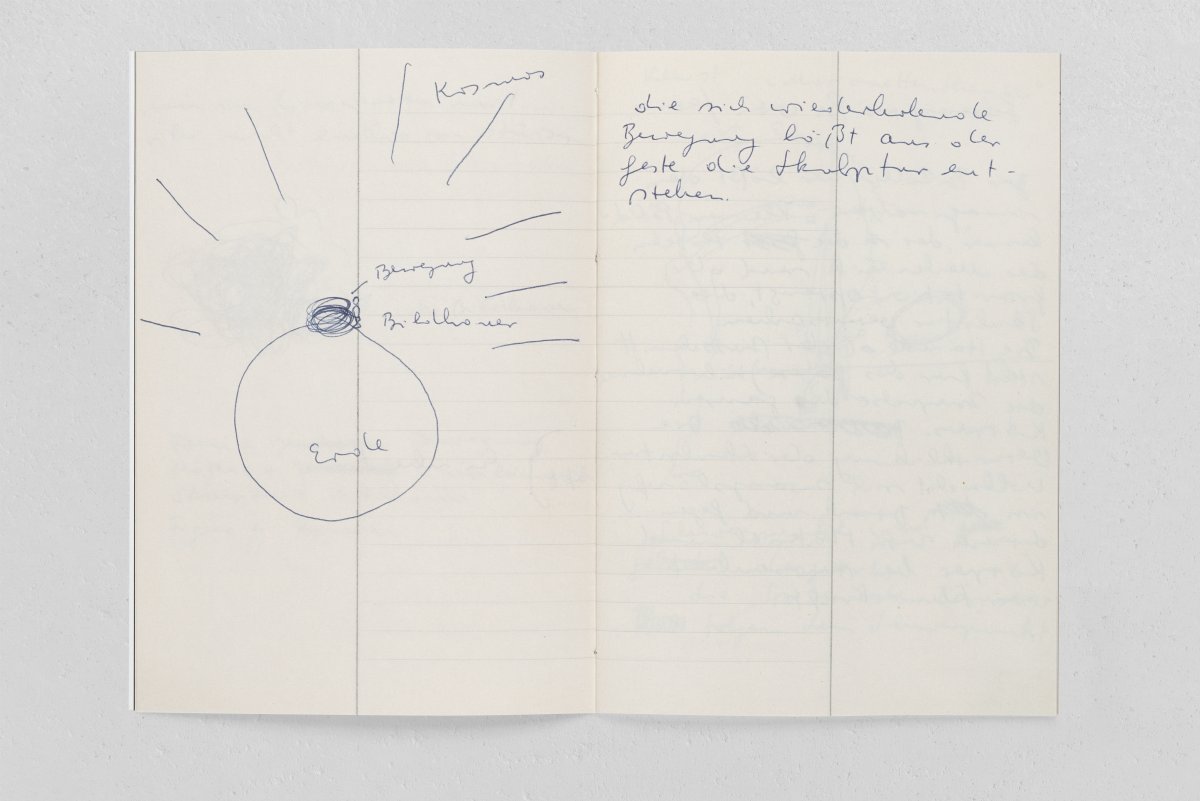 Kosmos
Bewegung
Bildhauer
Erde
die sich wiederholende
Bewegung läßt aus der
geste die Skulptur ent-
stehen.